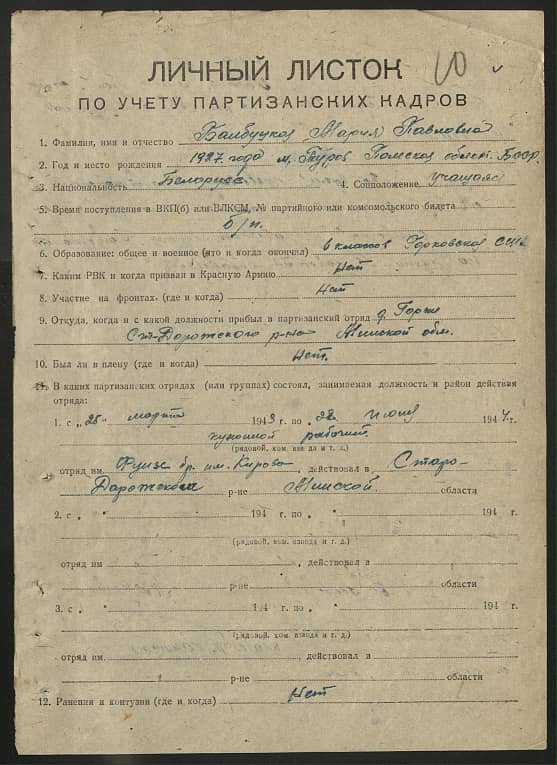 10
ЛИЧНЫЙ ЛИСТОК
ПО УЧЕТУ ПАРТИЗАНСКИХ КАДРОВ
1. Фамилия, имя и отчество Балбуцкая Мария Павловна
2. Год и место рождения 1927 года м. Туров Полеская област. БССР.
3. Национальность Беларуса 4. Соцположение учащаяся
5. Время поступления в ВКП(б) или ВЛКСМ, № партийного или комсомольского билета
б/п.
6. Образование: общее и военное (что и когда окончил) 6 классов Горковская СШ
7. Каким РВК и когда призван в Красную Армию Нет
8. Участие на фронтах (где и когда) Нет
9. Откуда, когда и с какой должности прибыл в партизанский отряд д. Горки
Ст-Дорожского р-на Минской обл.
10. Был ли в плену (где и когда) Нет.
11. В каких партизанских отрядах (или группах) состоял, занимаемая должность и район действия
отряда:
1. с „25" марта 1943 г. по „22 июня 1944 г.
кухонной рабочий.
(рядовой, ком. взвода и т. д.)
отряд им. Фрунзе бр. им. Кирова, действовал в Старо-
Дорожском р-не Минской области
2. с „ " 194 г. по „ " 194 г.
(рядовой, ком. взвода и т. д.)
отряд им , действовал в
р-не области
3. с „ " 194 г. по „ " 194 г.
(рядовой, ком. взвода и т. д.)
отряд им , действовал в
р-не области
12. Ранения и контузии (где и когда) Нет